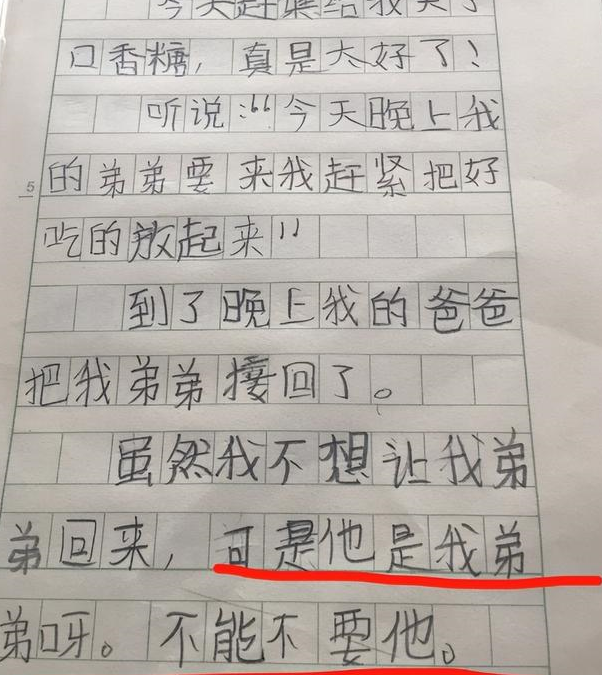 今天赶集给我买了
口香糖，真是太好了！
听说：“今天晚上我
5
的弟弟要来我赶紧把好
吃的放起来”
到了晚上我的爸爸
把我弟弟接回了。
虽然我不想让我弟
弟回来，可是他是我弟
弟呀。不能不要他。